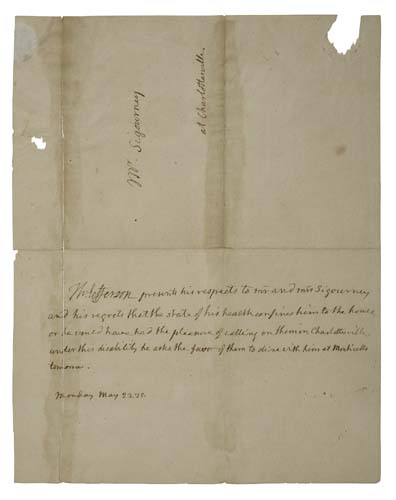 Mr. Sigourney
at Charlottesville.
Th: Jefferson presents his respects to mr and mrs Sigourney
and his regrets that the state of his health confines him to the house,
or he would have had the pleasure of calling on them in Charlottesville.
under this disability he asks the favor of them to dine with him at Monticello
tomorrow.
Monday May 23. 25.